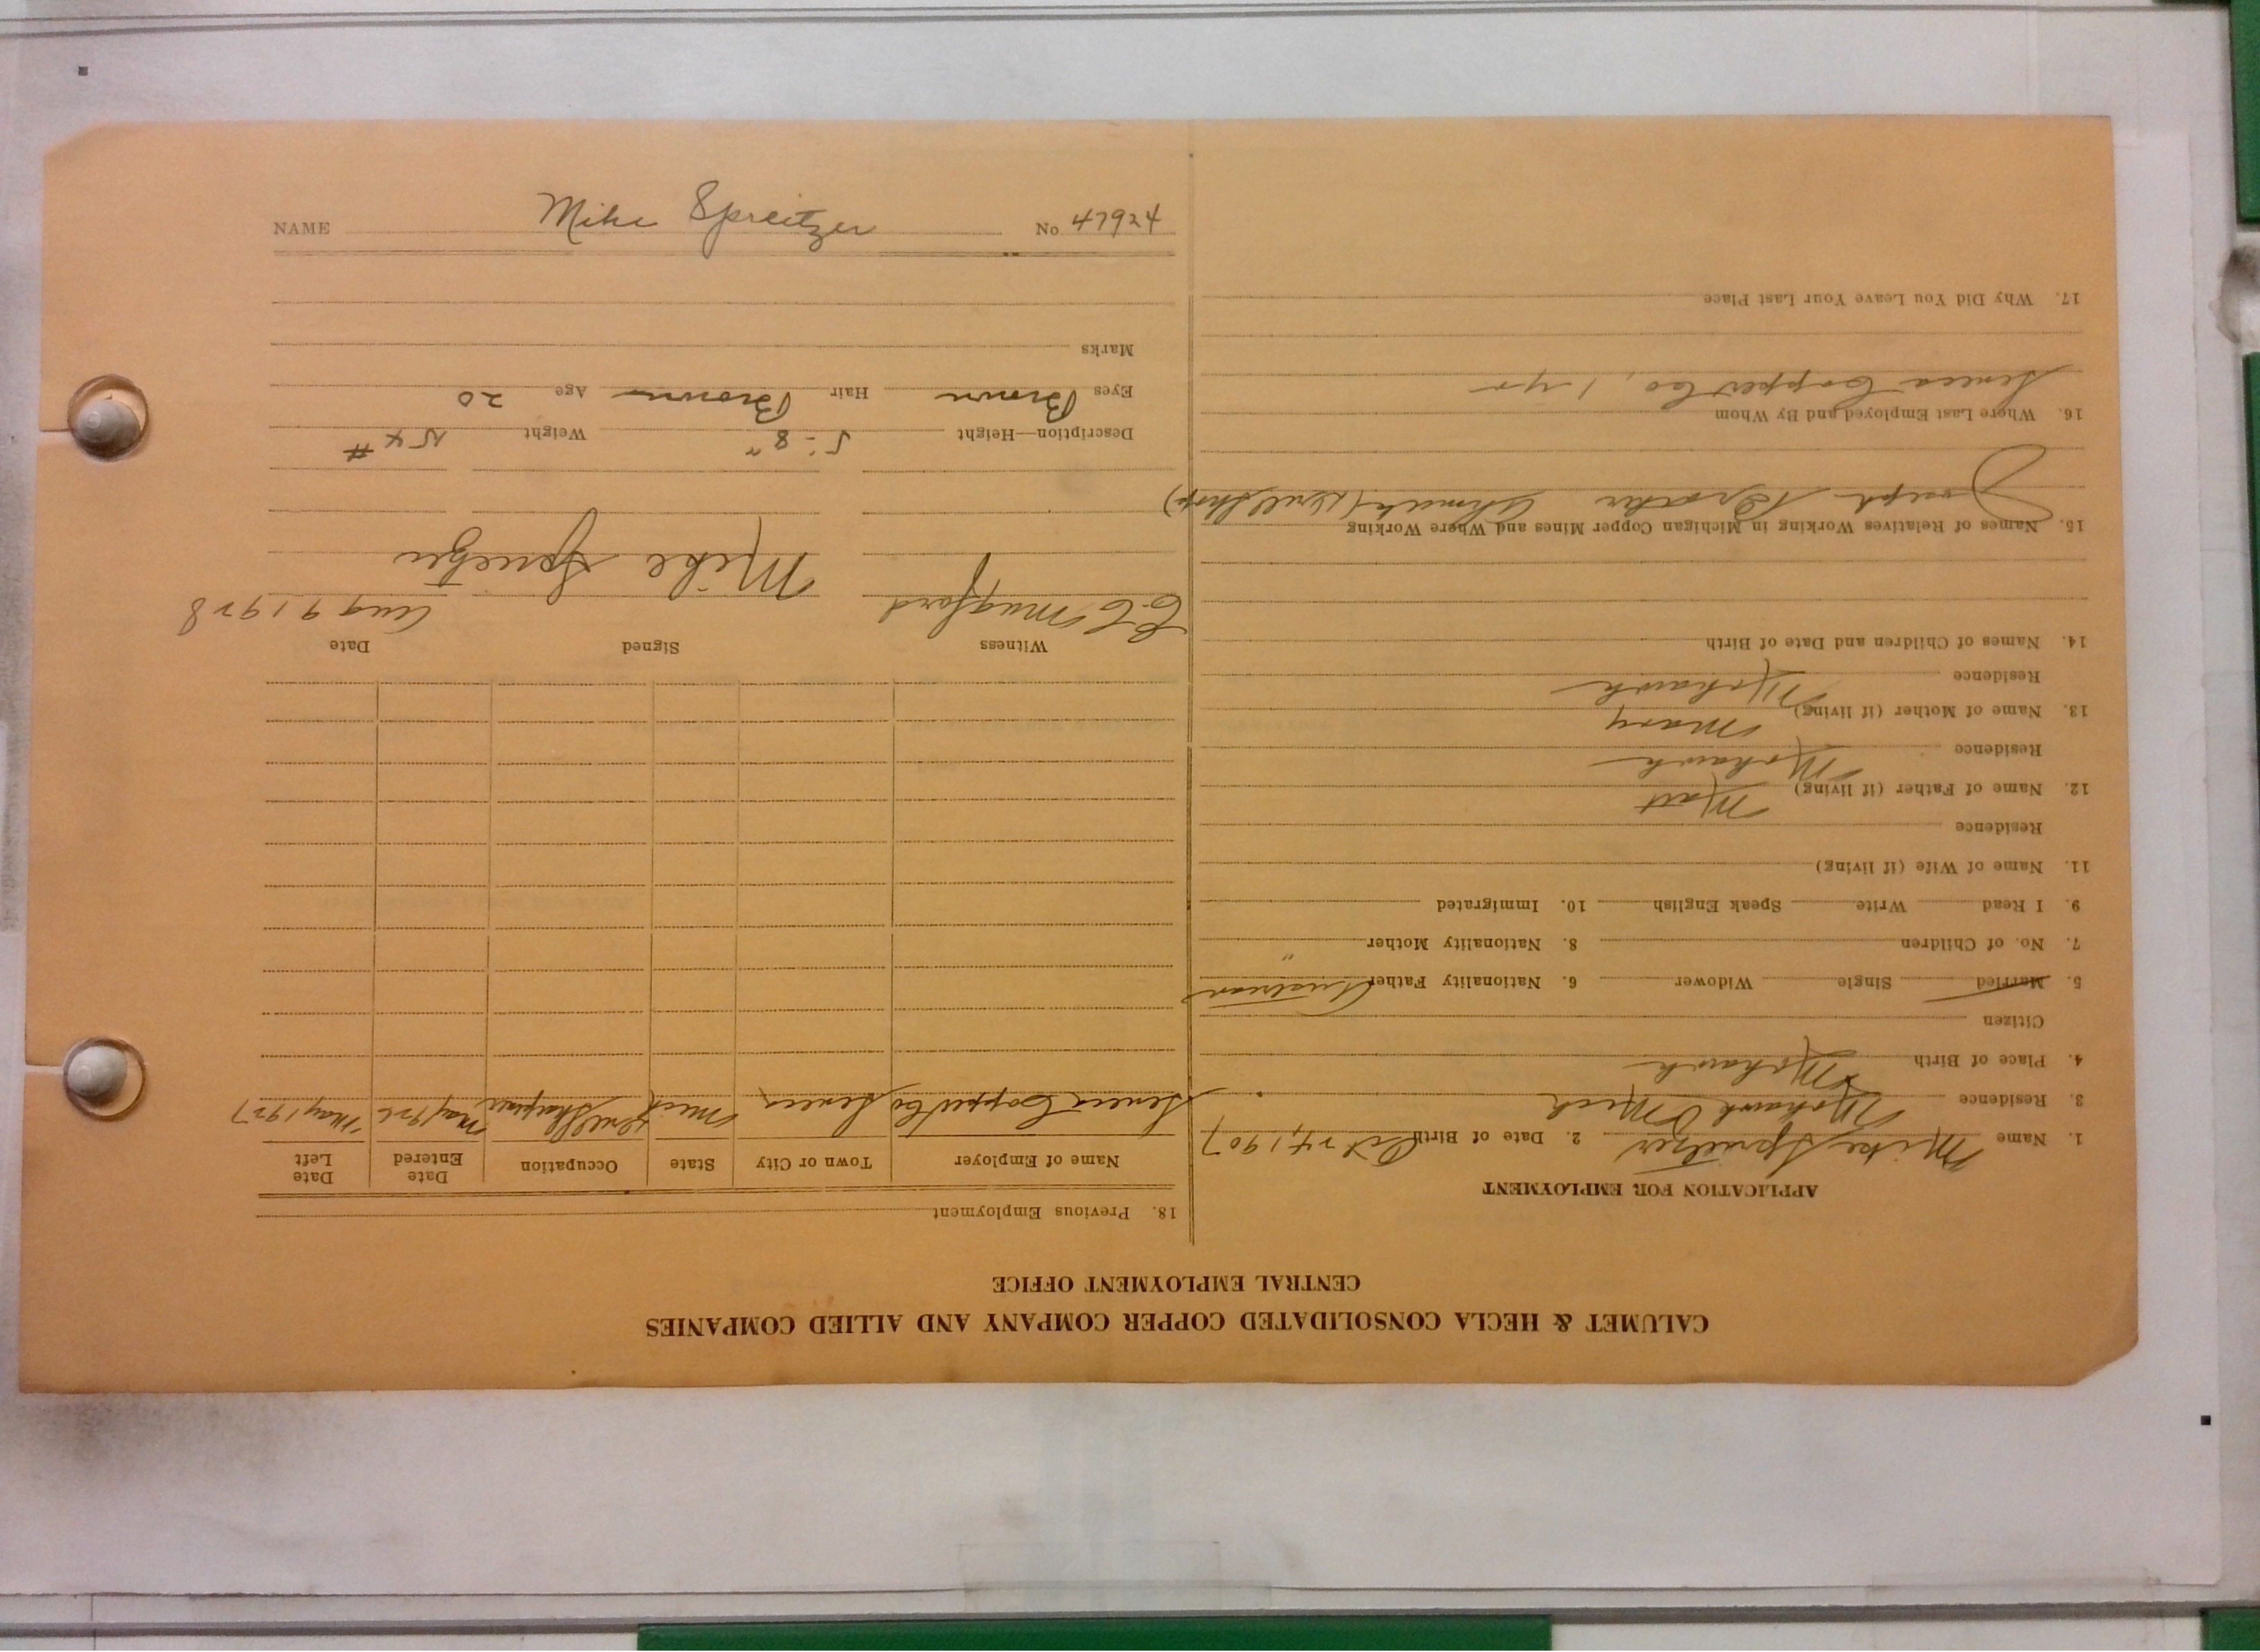 CALUMET & HECLA CONSOLIDATED COPPER COMPANY AND ALLIED COMPANIES
CENTRAL EMPLOYMENT OFFICE
APPLICATION FOR EMPLOYMENT
1. Name Mike Spreitzer 2. Date of Birth Oct 24, 1907
3. Residence Mohawk Mich
4. Place of Birth Mohawk
Citizen
5. Married Single Widower 6. Nationality Father Austrian
7. No. of Children 8. Nationality Mother "
9. I Read Write Speak English 10. Immigrated
11. Name of Wife (if living)
Residence
12. Name of Father (if living) Matt
Residence Mohawk
13. Name of Mother (if living) Mary
Residence Mohawk
14. Names of Children and Date of Birth
15. Names of Relatives Working in Michigan Copper Mines and Where Working
Joseph Brother Ahmeek (Drill Shop)
16. Where Last Employed and By Whom
Seneca Copper Co, 1 yr
17. Why Did You Leave Your Last Place
18. Previous Employment
Name of Employer Town or City State Occupation Date Entered Date Left
Seneca Copper Co Seneca Mich Drill Sharpener May 1926 May 1927
Witness Signed Date
Mugford Mike Spreitzer Aug 9 1928
Description—Height 5-8" Weight 154 #
Eyes Brown Hair Brown Age 20
Marks
NAME Mike Spreitzer No. 47924